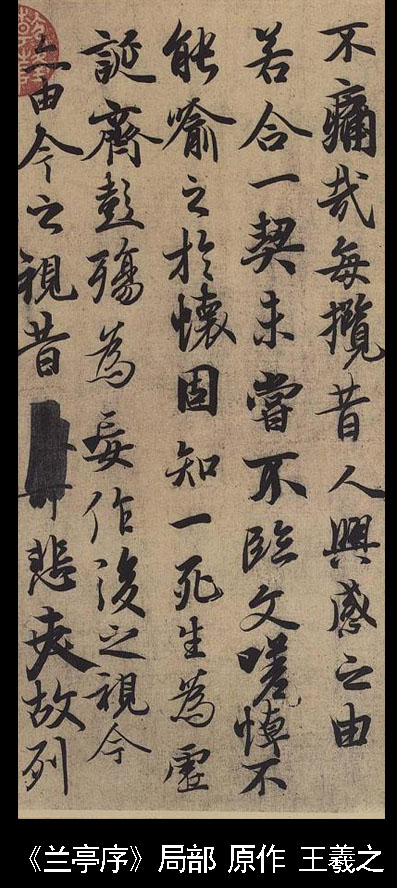 不痛哉每攬昔人興感之由
若合一契未嘗不臨文嗟悼不
能喻之於懷固知一死生為虛
誕齊彭殤為妄作後之視今
亦由今之視昔悲夫故列
《兰亭序》局部 原作 王羲之